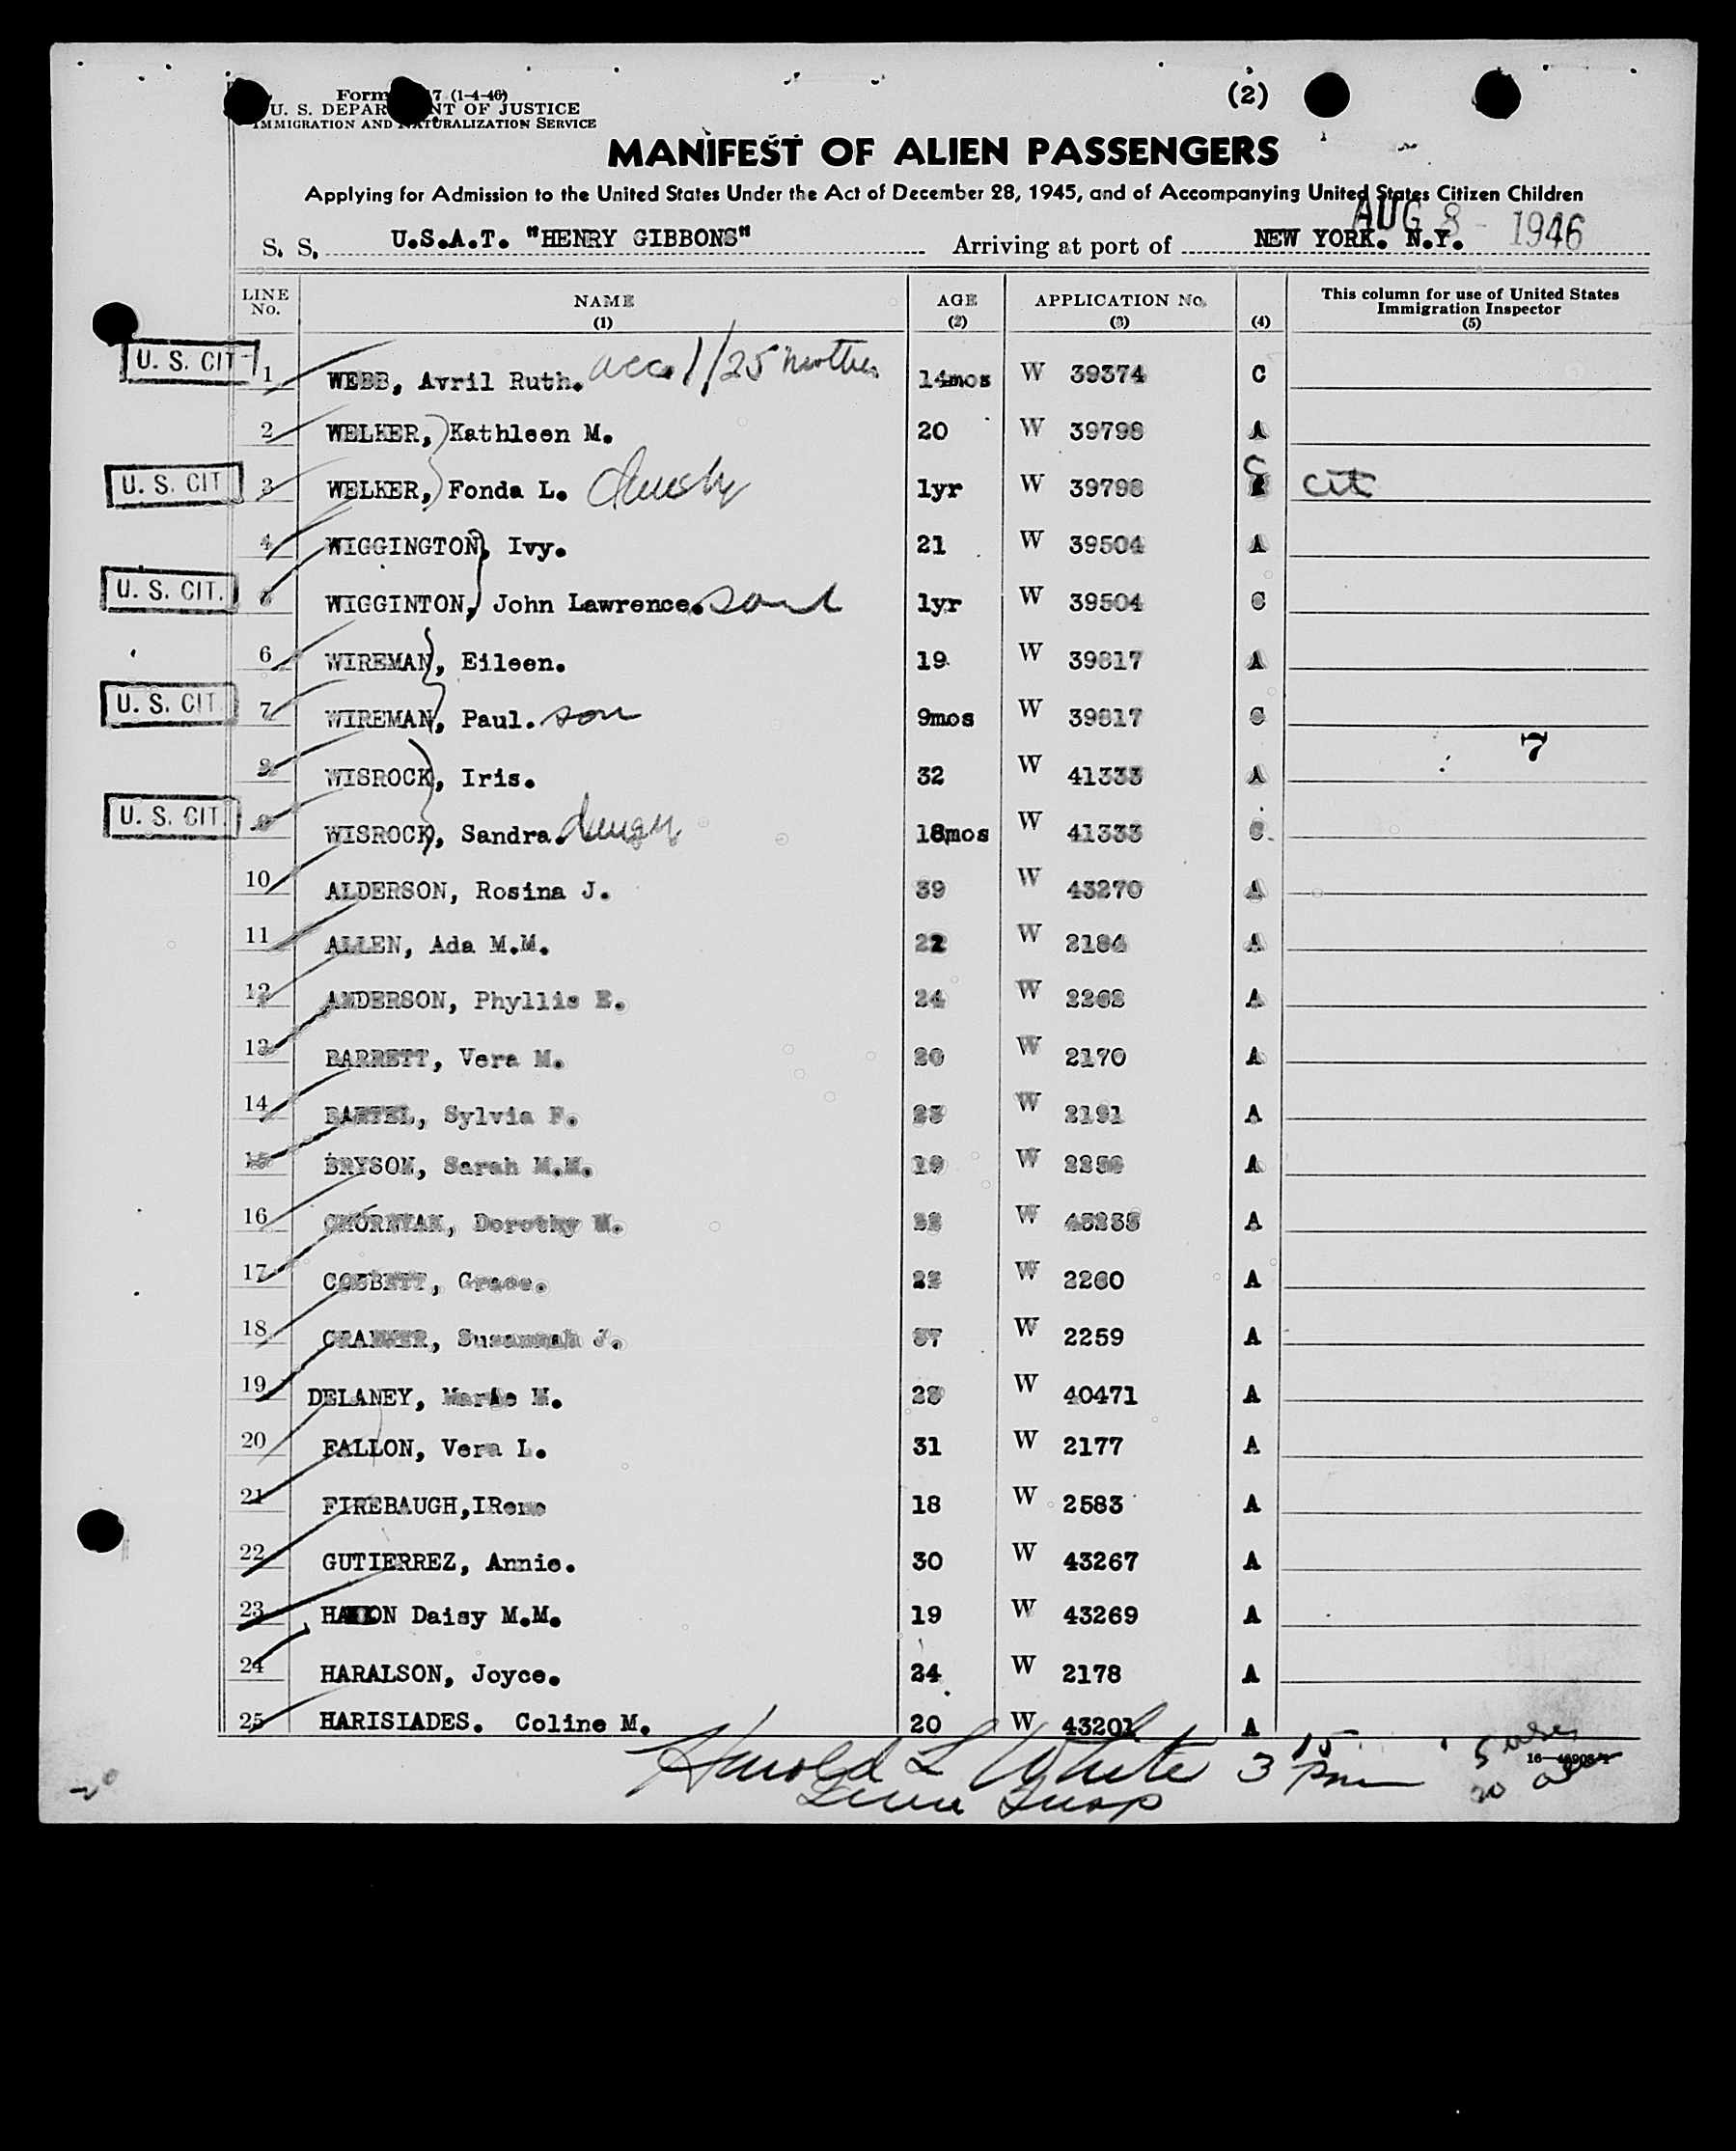 (2)
Form 7 (1-4-46)
U. S. DEPARTMENT OF JUSTICE
IMMIGRATION AND NATURALIZATION SERVICE
MANIFEST OF ALIEN PASSENGERS
Applying for Admission to the United States Under the Act of December 28, 1945, and of Accompanying United States Citizen Children
AUG 8 - 1946
S. S. U.S.A.T. "HENRY GIBBONS" Arriving at port of NEW YORK. N.Y.
LINE No. NAME (1) AGE (2) APPLICATION No. (3) (4) This column for use of United States Immigration Inspector (5)
U. S. CIT 1 WEBB, Avril Ruth. acc. 1/25 mother 14mos W 39374 C
2 WELKER, Kathleen M. 20 W 39798 A
U. S. CIT 3 WELKER, Fonda L. 1yr W 39798 C cit
4 WIGGINGTON, Ivy. 21 W 39504 A
U. S. CIT. WIGGINTON, John Lawrence. 1yr W 39504 C
6 WIREMAN, Eileen. 19 W 39817 A
U. S. CIT 7 WIREMAN, Paul. son 9mos W 39817 C
7
8 WISROCK, Iris. 32 W 41333 A
U. S. CIT. 9 WISROCK, Sandra. 18mos W 41333 C
10 ALDERSON, Rosina J. 39 W 43270 A
11 ALLEN, Ada M.M. 22 W 2184 A
12 ANDERSON, Phyllis E. 24 W 2262 A
13 BARRETT, Vera M. 20 W 2170 A
14 BARTEL, Sylvia F. 23 W 2191 A
15 BRYSON, Sarah M.M. 19 W A
16 Dorothy M. 22 W A
17 Grace. 22 W 2260 A
18 Susannah J. 37 W 2259 A
19 DELANEY, Marie M. W 40471 A
20 FALLON, Vera L. 31 W 2177 A
21 FIREBAUGH,IRene 18 W 2583 A
22 GUTIERREZ, Annie. 30 W 43267 A
23 Daisy M.M. 19 W 43269 A
24 HARALSON, Joyce. 24 W 2178 A
25 HARISIADES. Coline M. 20 W 43201 A
Harold L White 3 15 Pm
Imm Insp
5
20